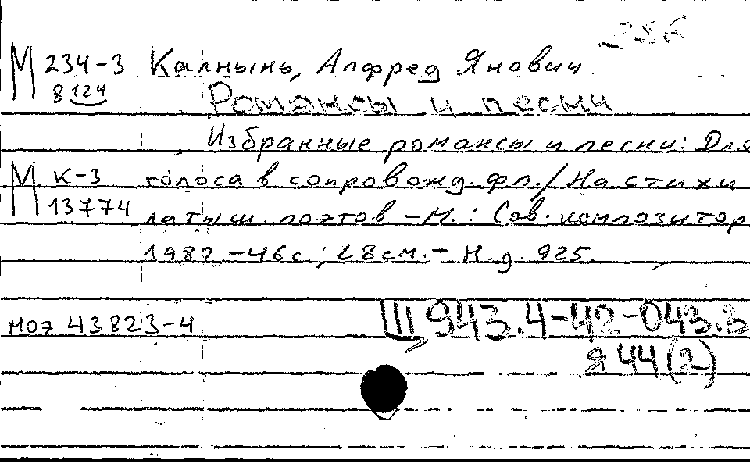 М 234-3 Калнынь, Алфред Янович
8124
Романсы и песни
Избранные романсы и песни: Для
М К-3 голоса в сопровожд. фп./На стихи
13774 латыш. поэтов -М.: Сов. композитор
1982 -46с.; 28см.- Н.д. 925.
МОЗ 43823-4 Щ 943.4-42-043.3
Я 44(2)